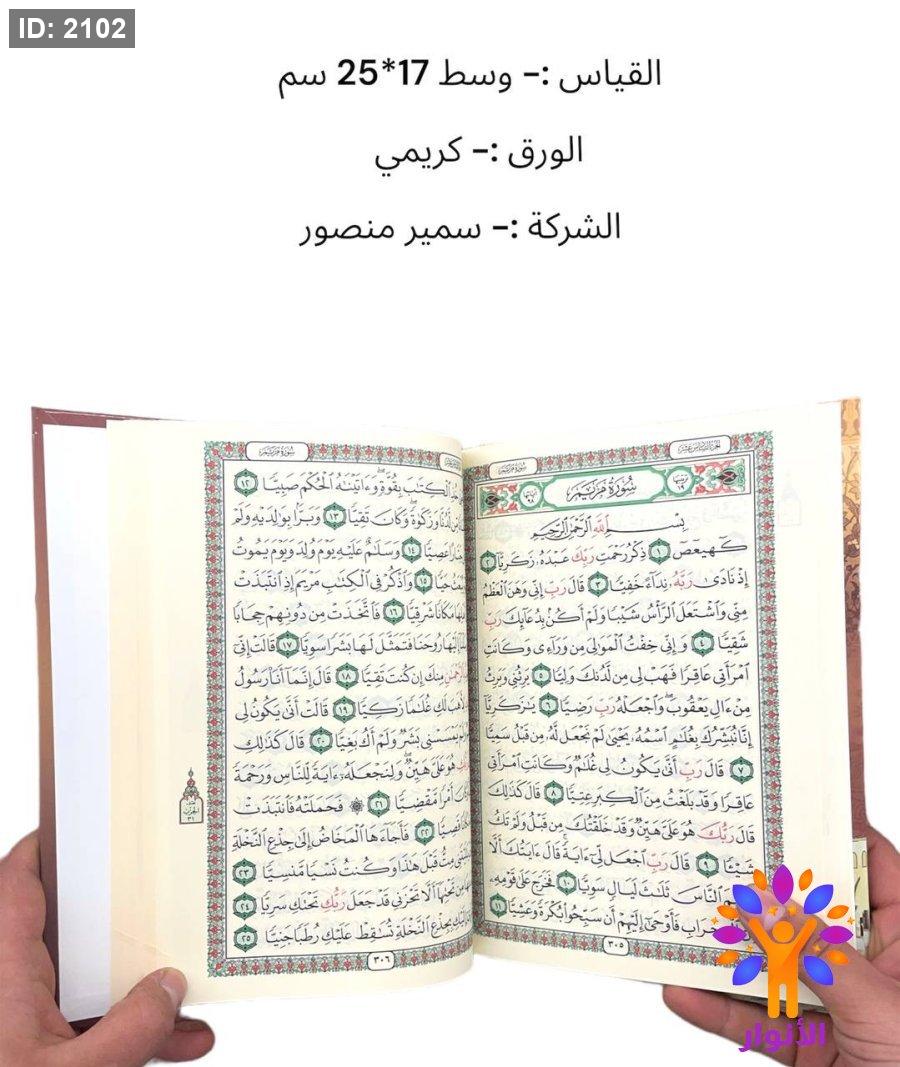 ID: 2102
القياس :- وسط 17*25 سم
الورق :- كريمي
الشركة :- سمير منصور
سُورَةُ مَرْيَمَ
سُورَةُ مَرْيَمَ
بِسْمِ ٱللَّهِ ٱلرَّحْمَٰنِ ٱلرَّحِيمِ
كٓهيعٓصٓ ١ ذِكْرُ رَحْمَتِ رَبِّكَ عَبْدَهُۥ زَكَرِيَّآ ٢
إِذْ نَادَىٰ رَبَّهُۥ نِدَآءً خَفِيًّا ٣ قَالَ رَبِّ إِنِّى وَهَنَ ٱلْعَظْمُ
مِنِّى وَٱشْتَعَلَ ٱلرَّأْسُ شَيْبًا وَلَمْ أَكُنۢ بِدُعَآئِكَ رَبِّ
شَقِيًّا ٤ وَإِنِّى خِفْتُ ٱلْمَوَٰلِىَ مِن وَرَآءِى وَكَانَتِ
ٱمْرَأَتِى عَاقِرًا فَهَبْ لِى مِن لَّدُنكَ وَلِيًّا ٥ يَرِثُنِى وَيَرِثُ
مِنْ ءَالِ يَعْقُوبَ وَٱجْعَلْهُ رَبِّ رَضِيًّا ٦ يَٰزَكَرِيَّآ
إِنَّا نُبَشِّرُكَ بِغُلَٰمٍ ٱسْمُهُۥ يَحْيَىٰ لَمْ نَجْعَل لَّهُۥ مِن قَبْلُ سَمِيًّا
٧ قَالَ رَبِّ أَنَّىٰ يَكُونُ لِى غُلَٰمٌ وَكَانَتِ ٱمْرَأَتِى
عَاقِرًا وَقَدْ بَلَغْتُ مِنَ ٱلْكِبَرِ عِتِيًّا ٨ قَالَ كَذَٰلِكَ
قَالَ رَبُّكَ هُوَ عَلَىَّ هَيِّنٌ وَقَدْ خَلَقْتُكَ مِن قَبْلُ وَلَمْ تَكُ
شَيْـًٔا ٩ قَالَ رَبِّ ٱجْعَل لِّىٓ ءَايَةً قَالَ ءَايَتُكَ أَلَّا
ٱلنَّاسَ ثَلَٰثَ لَيَالٍ سَوِيًّا ١٠ فَخَرَجَ عَلَىٰ قَوْمِهِۦ
فَأَوْحَىٰٓ إِلَيْهِمْ أَن سَبِّحُوا۟ بُكْرَةً وَعَشِيًّا ١١
٣٠٥
سُورَةُ مَرْيَمَ
ٱلْكِتَٰبَ بِقُوَّةٍ وَءَاتَيْنَٰهُ ٱلْحُكْمَ صَبِيًّا ١٢
مِّن لَّدُنَّا وَزَكَوٰةً وَكَانَ تَقِيًّا ١٣ وَبَرًّۢا بِوَٰلِدَيْهِ وَلَمْ
عَصِيًّا ١٤ وَسَلَٰمٌ عَلَيْهِ يَوْمَ وُلِدَ وَيَوْمَ يَمُوتُ
حَيًّا ١٥ وَٱذْكُرْ فِى ٱلْكِتَٰبِ مَرْيَمَ إِذِ ٱنتَبَذَتْ
مَكَانًا شَرْقِيًّا ١٦ فَٱتَّخَذَتْ مِن دُونِهِمْ حِجَابًا
إِلَيْهَا رُوحَنَا فَتَمَثَّلَ لَهَا بَشَرًا سَوِيًّا ١٧ قَالَتْ إِنِّىٓ
مِنكَ إِن كُنتَ تَقِيًّا ١٨ قَالَ إِنَّمَآ أَنَا۠ رَسُولُ
لِأَهَبَ لَكِ غُلَٰمًا زَكِيًّا ١٩ قَالَتْ أَنَّىٰ يَكُونُ لِى
يَمْسَسْنِى بَشَرٌ وَلَمْ أَكُ بَغِيًّا ٢٠ قَالَ كَذَٰلِكِ
هُوَ عَلَىَّ هَيِّنٌ وَلِنَجْعَلَهُۥٓ ءَايَةً لِّلنَّاسِ وَرَحْمَةً
أَمْرًا مَّقْضِيًّا ٢١ فَحَمَلَتْهُ فَٱنتَبَذَتْ
قَصِيًّا ٢٢ فَأَجَآءَهَا ٱلْمَخَاضُ إِلَىٰ جِذْعِ ٱلنَّخْلَةِ
مِتُّ قَبْلَ هَٰذَا وَكُنتُ نَسْيًا مَّنسِيًّا ٢٣
مِن تَحْتِهَآ أَلَّا تَحْزَنِى قَدْ جَعَلَ رَبُّكِ تَحْتَكِ سَرِيًّا ٢٤
بِجِذْعِ ٱلنَّخْلَةِ تُسَٰقِطْ عَلَيْكِ رُطَبًا جَنِيًّا ٢٥
٣٠٦
الأنوار